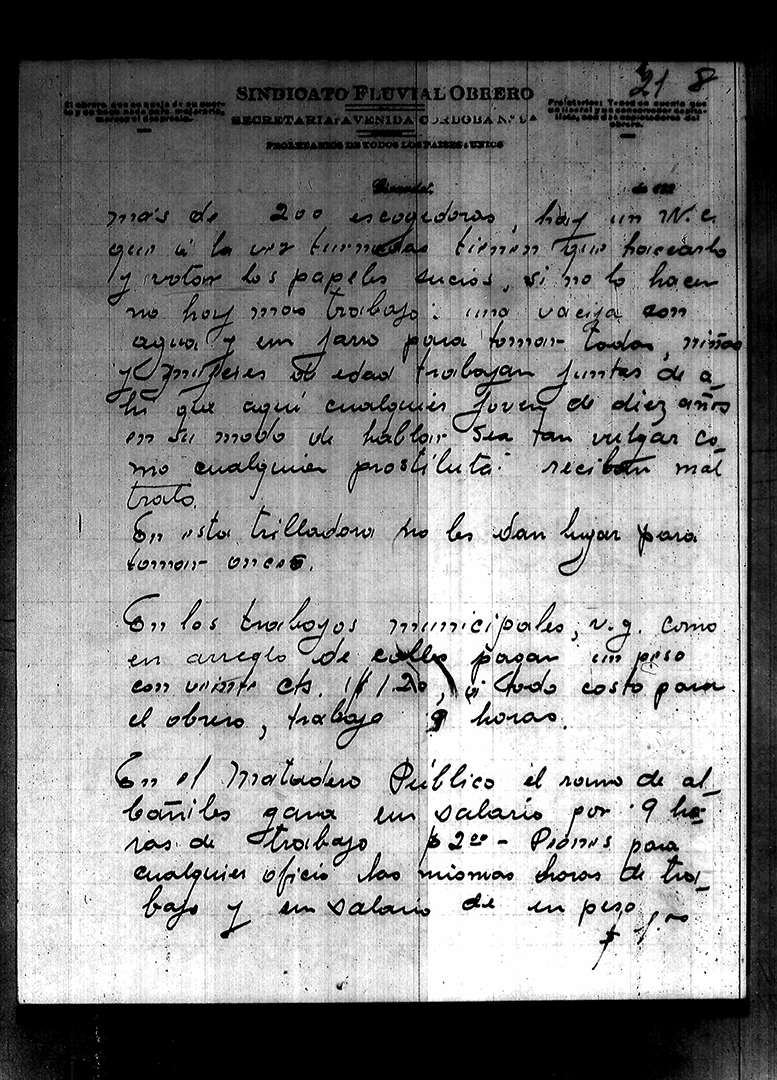 21 8
SINDICATO FLUVIAL OBRERO
El obrero que se queja de su suerte y no hace nada para mejorarla, merece el desprecio.
SECRETARIA: AVENIDA CORDOBA N.º 9A
Proletarios: Tened en cuenta que un liberal y un conservador capitalista, son dos explotadores del obrero.
PROLETARIOS DE TODOS LOS PAISES: UNIOS
Girardot, de 192
mas de 200 escogedoras, hay un W.C.
que a la vez turnadas tienen que hacearlo
y votar los papeles sucios, si no lo hacen
no hay mas trabajo: una vacija con
agua y un jarro para tomar todas, niñas
y mujeres de edad trabajan juntas de a_
hi que aqui cualquier joven de diez años
en su modo de hablar sea tan vulgar co_
mo cualquier prostituta: reciben mal
trato.
En esta trilladora no les dan lugar para
tomar onces.
En los trabajos municipales, v.g. como
en arreglo de calles pagan un peso
con veinte cts. $ 1.20, a todo costo para
el obrero, trabajo 9 horas.
En el Matadero Público el ramo de al_
bañiles gana un salario por 9 ho_
ras de trabajo $ 2.00 - Peones para
cualquier oficio las mismas horas de tra_
bajo y un salario de un peso
$ 1.00